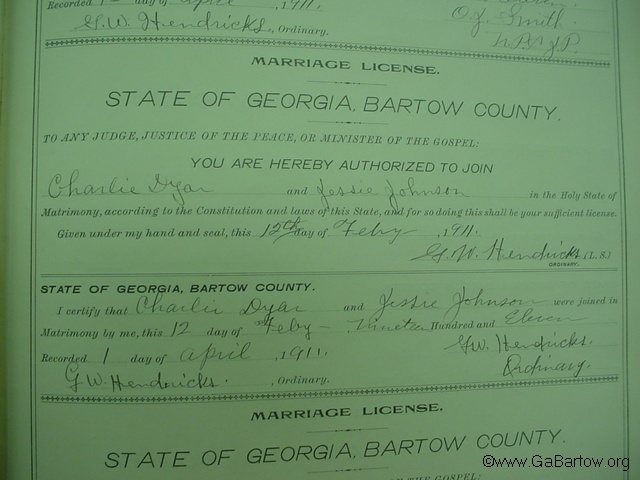 Recorded 1 day of April , 1911.
G.W. Hendricks , Ordinary.
O.J. Smith.
N.P. & J.P.
MARRIAGE LICENSE.
STATE OF GEORGIA, BARTOW COUNTY.
TO ANY JUDGE, JUSTICE OF THE PEACE, OR MINISTER OF THE GOSPEL:
YOU ARE HEREBY AUTHORIZED TO JOIN
Charlie Dyar and Jessie Johnson in the Holy State of
Matrimony, according to the Constitution and laws of this State, and for so doing this shall be your sufficient license.
Given under my hand and seal, this 12th day of Feby , 1911.
G.W. Hendricks (L.S.)
ORDINARY.
STATE OF GEORGIA, BARTOW COUNTY.
I certify that Charlie Dyar and Jessie Johnson were joined in
Matrimony by me, this 12 day of Feby - , Nineteen Hundred and Eleven
Recorded 1 day of April , 1911.
G.W. Hendricks.
G.W. Hendricks. , Ordinary.
Ordinary.
MARRIAGE LICENSE.
STATE OF GEORGIA, BARTOW COUNTY.
OF THE GOSPEL:
©www.GaBartow.org